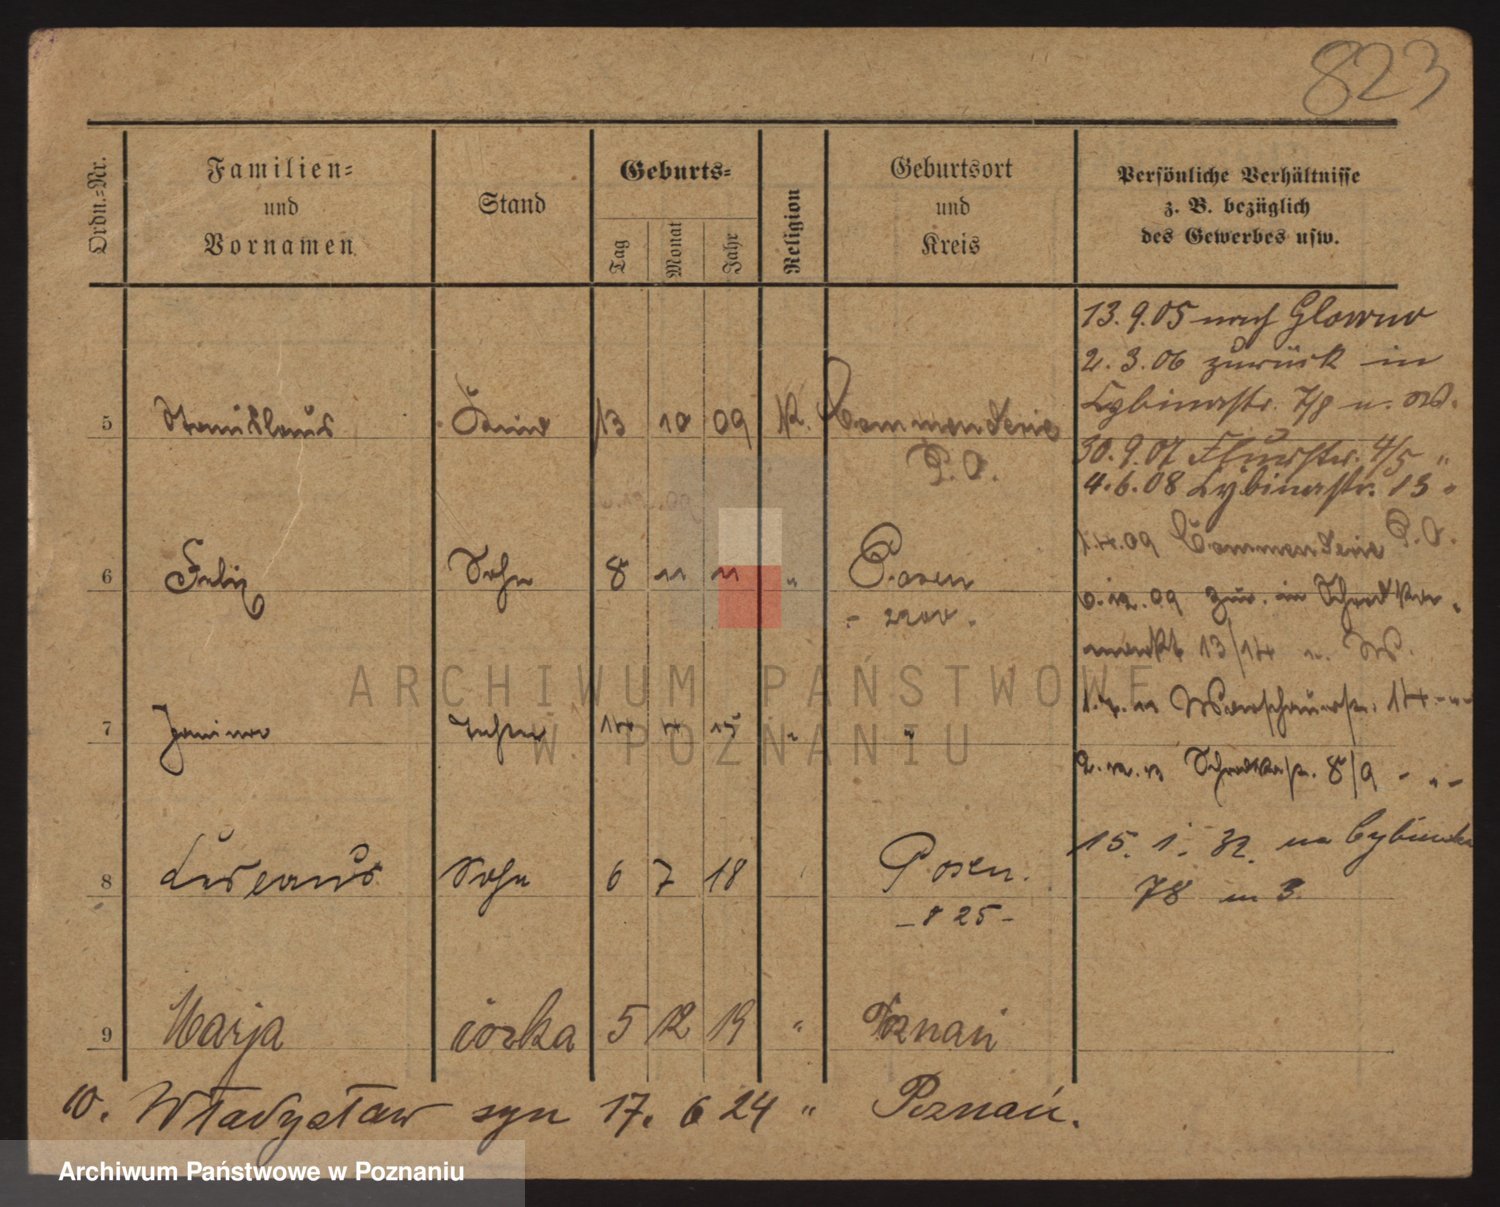 823
Ordn.-Nr.
Familien- und Vornamen
Stand
Geburts-
Tag
Monat
Jahr
Religion
Geburtsort und Kreis
Persönliche Verhältnisse
z. B. bezüglich
des Gewerbes usw.
13.9.05 nach Glowno
2.3.06 zurück in
Cybinastr. 7/8 u. W.
5 Stanislaus 13 10 09 K. Commenderie
P. O.
30.9.07 4/5 "
4.6.08 Cybinastr. 13 "
09 Commenderie P. O.
6 Felix Sohn 8 11 11 " Posen
6.12.09 zur. in Schrodka-
markt 13/14 u. W.
7 Janina Tochter 14 4 15 " "
Warschauerstr. 14 - " -
Schrodkastr. 8/9 - " -
15. 1. 32. na Cybińska
78 m 3.
8 Sohn 6 7 18 Posen.
- 825 -
9 Marja córka 5 12 19 " Poznań
10. Władysław syn 17. 6 24 " Poznań.
ARCHIWUM PAŃSTWOWE
W POZNANIU
Archiwum Państwowe w Poznaniu